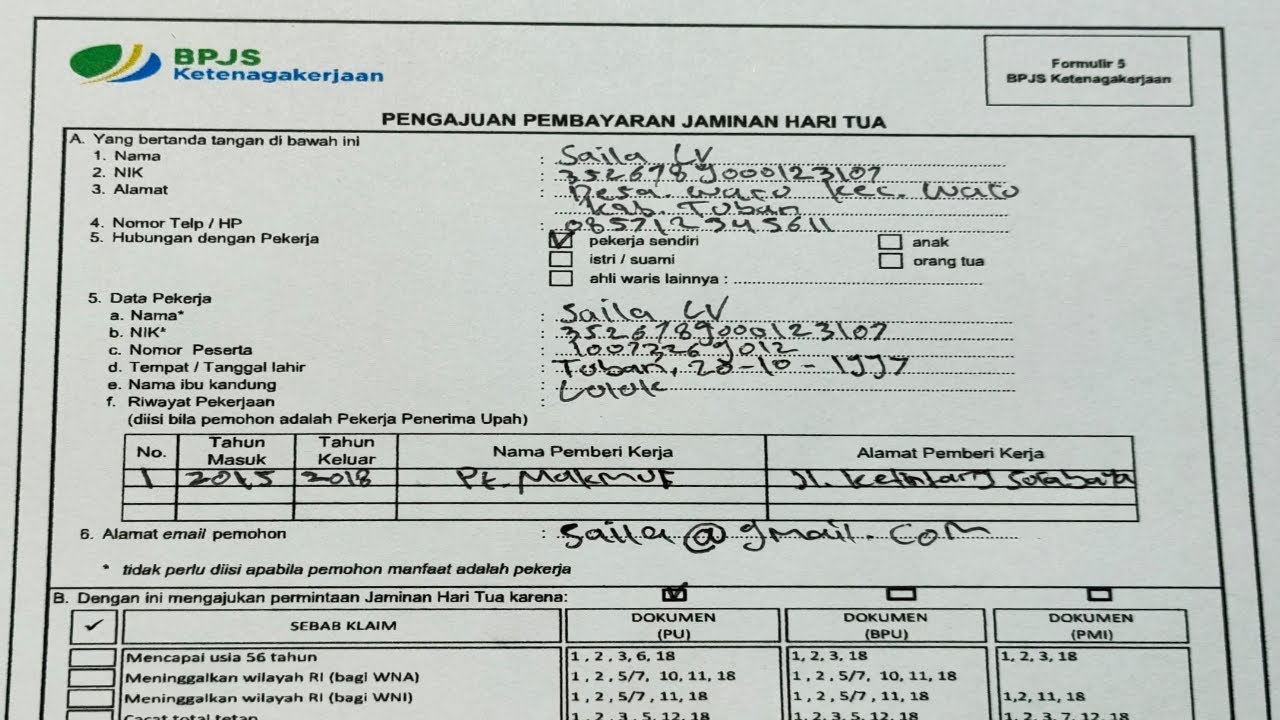 BPJS
Ketenagakerjaan
Formulir 5
BPJS Ketenagakerjaan
PENGAJUAN PEMBAYARAN JAMINAN HARI TUA
A. Yang bertanda tangan di bawah ini
1. Nama : Saila LV
2. NIK : 3526789000123107
3. Alamat : Desa. Waru Kec. Waru
Kab. Tuban
4. Nomor Telp / HP : 085712345611
5. Hubungan dengan Pekerja pekerja sendiri anak
istri / suami orang tua
ahli waris lainnya :
5. Data Pekerja
a. Nama* : Saila LV
b. NIK* : 3526789000123107
c. Nomor Peserta : 10073269012
d. Tempat / Tanggal lahir : Tuban, 28-10-1997
e. Nama ibu kandung :
f. Riwayat Pekerjaan :
(diisi bila pemohon adalah Pekerja Penerima Upah)
No. Tahun Masuk Tahun Keluar Nama Pemberi Kerja Alamat Pemberi Kerja
1 2015 2018 Pt. Makmur Jl. Ketintang Surabaya
6. Alamat email pemohon : saila@gmail.com
* tidak perlu diisi apabila pemohon manfaat adalah pekerja
B. Dengan ini mengajukan permintaan Jaminan Hari Tua karena:
✓ SEBAB KLAIM DOKUMEN (PU) DOKUMEN (BPU) DOKUMEN (PMI)
Mencapai usia 56 tahun 1, 2, 3, 6, 18 1, 2, 3, 18 1, 2, 3, 18
Meninggalkan wilayah RI (bagi WNA) 1, 2, 5/7, 10, 11, 18 1, 2, 5/7, 10, 11, 18
Meninggalkan wilayah RI (bagi WNI) 1, 2, 5/7, 11, 18 1, 2, 5/7, 11, 18 1,2, 11, 18
Cacat total tetap 1, 2, 3, 5, 12, 18 1, 2, 3, 5, 12, 18 1, 2, 3, 7, 12, 18